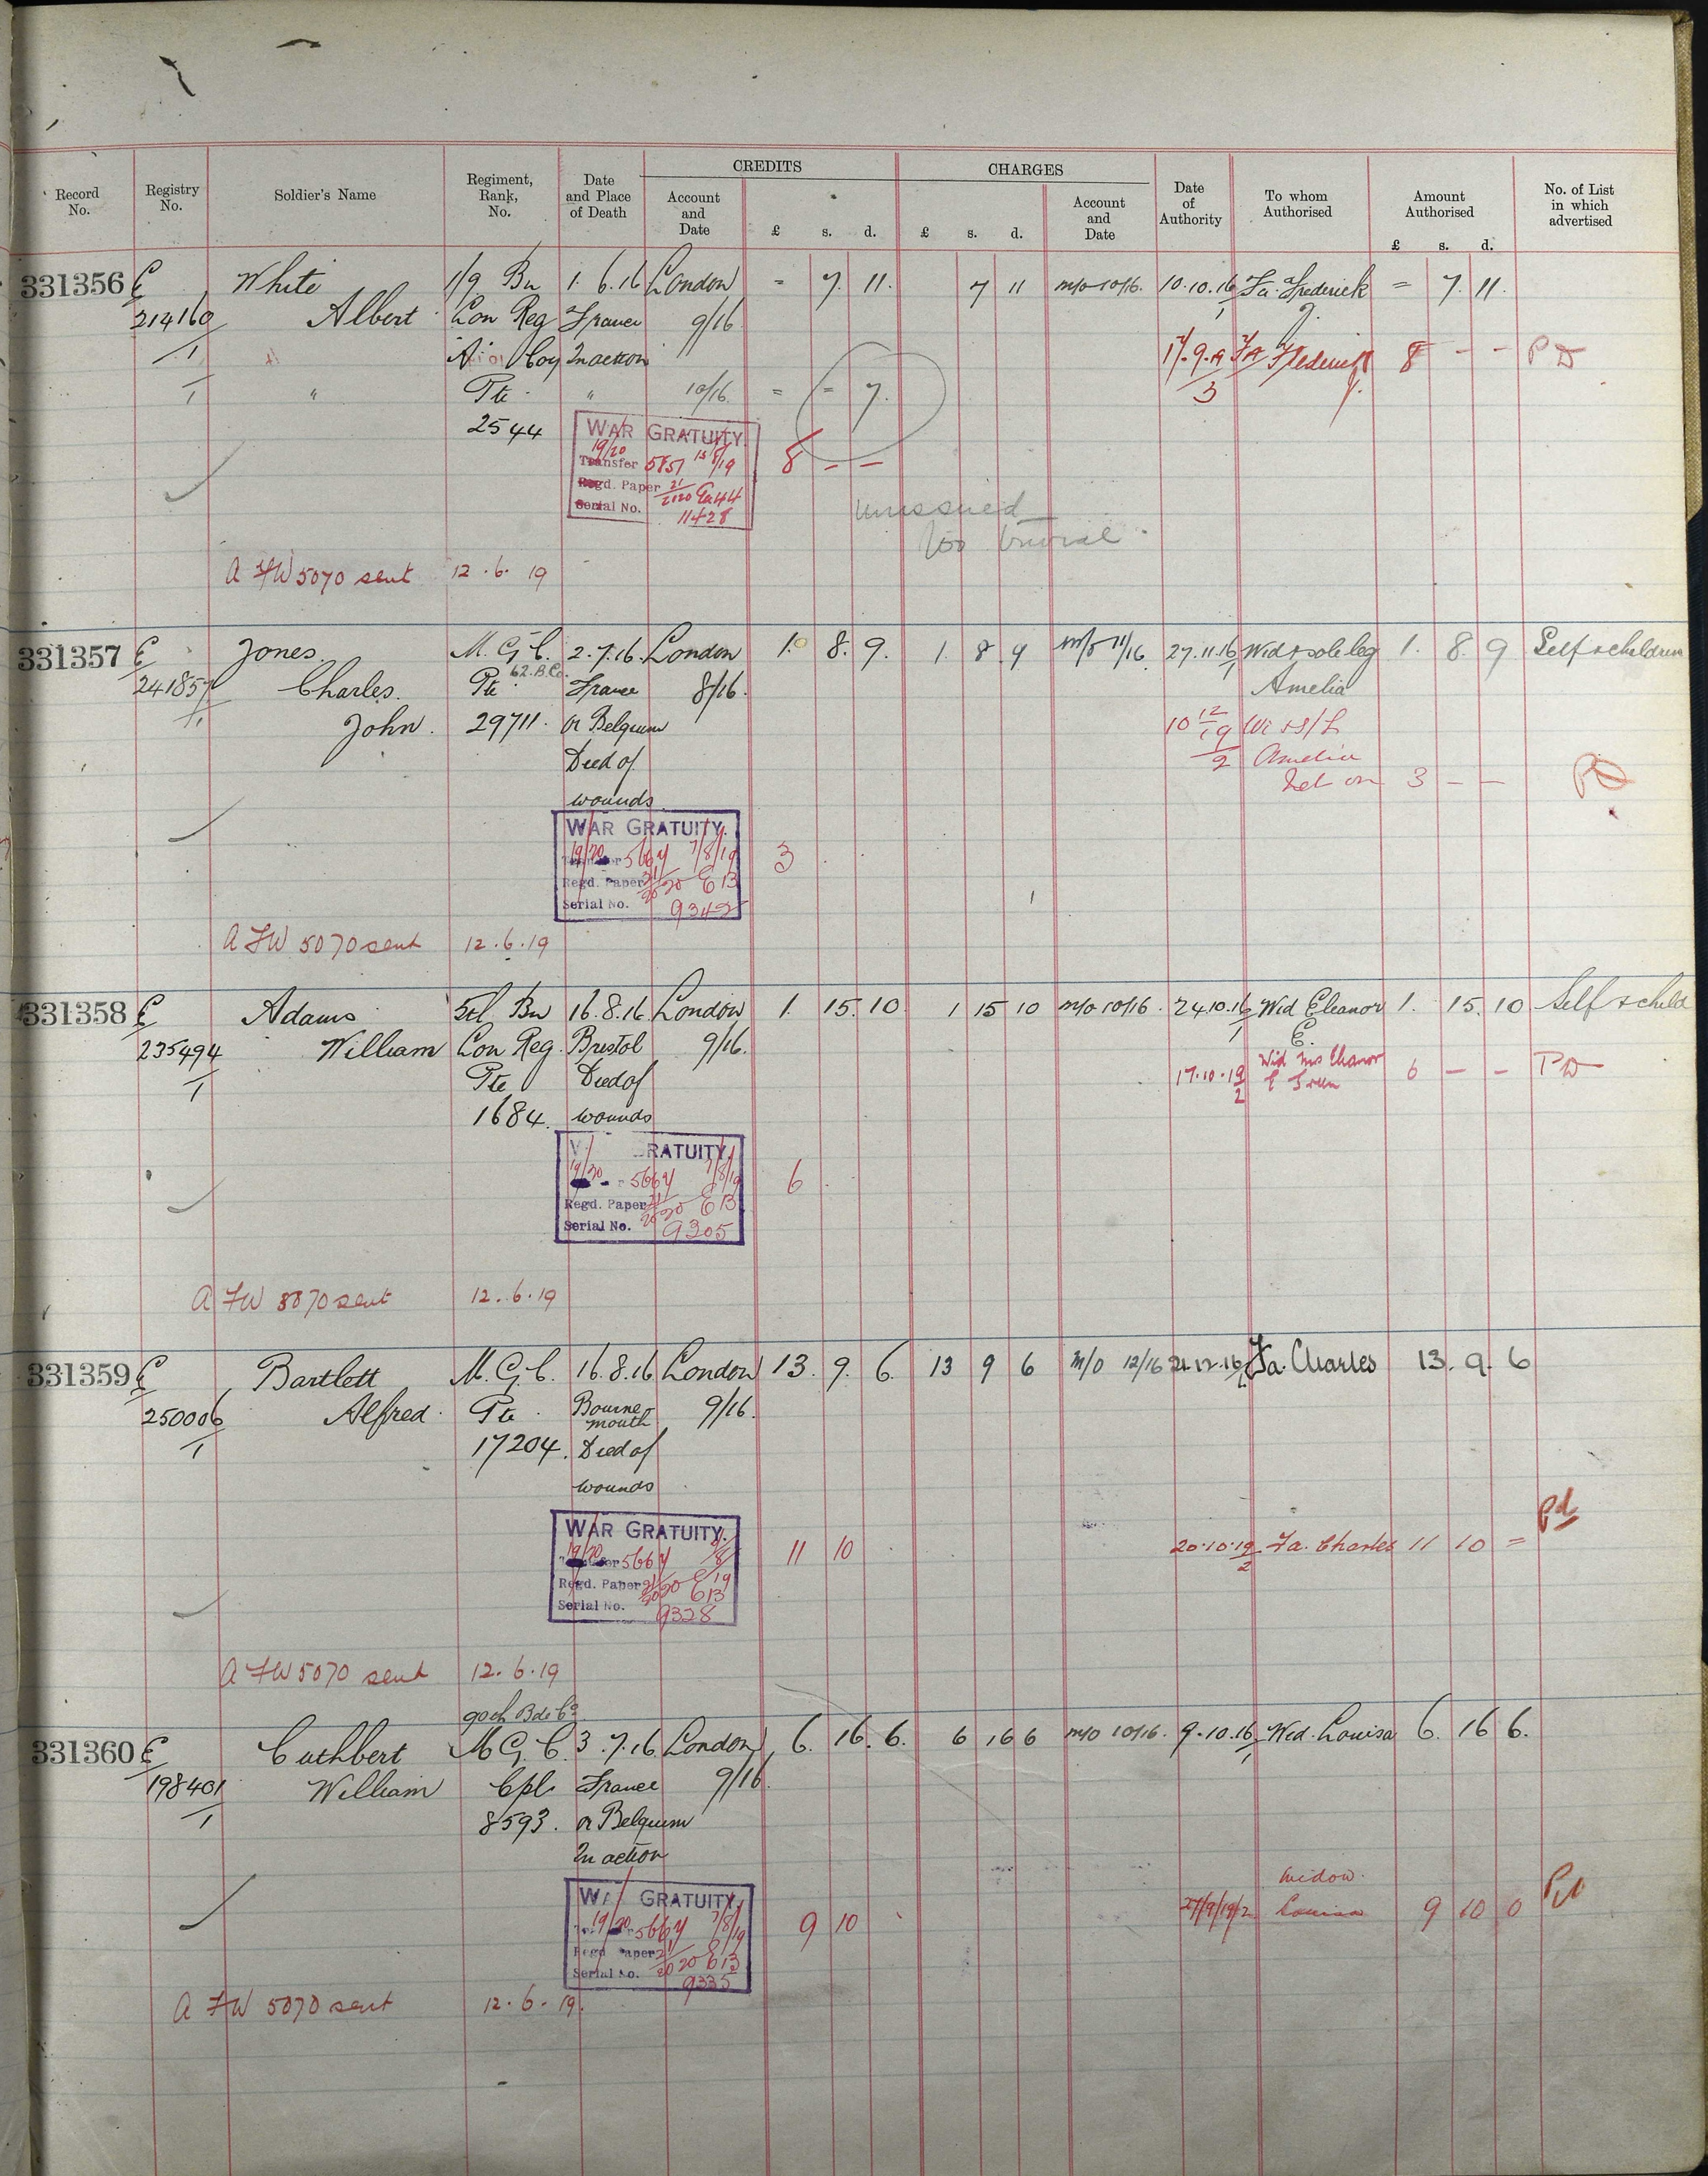 CREDITS CHARGES
Record No. Registry No. Soldier's Name Regiment, Rank, No. Date and Place of Death Account and Date £ s. d. £ s. d. Account and Date Date of Authority To whom Authorised Amount Authorised £ s. d. No. of List in which advertised
331356 E White 1/9 Bn 1.6.16 London = 7. 11. 7 11 m/o 10/16. 10.10.16 Fa. Frederick = 7. 11.
214160 Albert Lon Reg France 9/16 1 J.
/1 "A" Coy In action 17.9.19 Fa Frederick 8 - - PD
1 " Pte " 10/16 = = 7. 3 J.
2544 WAR GRATUITY
19/20 Transfer 5851 8 - -
Regd. Paper 21/2020 Ea44
Serial No. 11428
unissued
too trivial
A FW 5070 sent 12.6.19
331357 E Jones M.G.C. 2.7.16. London 1. 8. 9. 1. 8 9 m/o 11/16. 27.11.16 Wid & sole leg 1. 8 9 Self & children
62.B.Co.
241857 Charles Pte France 8/16. 1 Amelia
/1 John. 29711. or Belgium 10 12/19 Wi & S/L
Died of 2 Amelia
wounds 3 - -
WAR GRATUITY.
19/20 5664 7/8/19 3
Regd. Paper 21/2020 E 13
Serial No. 9342
A FW 5070 sent 12.6.19
331358 E Adams 5th Bn 16.8.16 London 1. 15. 10 1 15 10 m/o 10/16. 24.10.16 Wid Eleanor 1. 15. 10 Self & child
235494 William Lon Reg. Bristol 9/16. 1 E.
1 Pte Died of 17.10.19 Wid Mrs Eleanor 6 - - PD
1684. wounds 2 E
RATUITY.
19/20 5664 7/8/19 6
Regd. Paper 21/2020 E 13
Serial No. 9305
A FW 5070 sent 12.6.19
331359 E Bartlett M.G.C. 16.8.16 London 13. 9. 6. 13 9 6 m/o 12/16 21.12.16 Fa. Charles 13. 9. 6
250006 Alfred. Pte. Bournemouth 9/16.
1 17204. Died of
wounds
WAR GRATUITY.
19/20 5664 11 10 20.10.19 Fa. Charles 11 10 = Pd
Regd. Paper 21/2020 E 13 2
Serial No. 9328
A FW 5070 sent 12.6.19
90th Bde Co.
331360 E Cuthbert M.G.C. 3.7.16 London 6. 16. 6. 6 16 6 m/o 10/16. 9.10.16 Wid. Louisa 6. 16 6.
198401 William Cpl. France 9/16. 1
1 8593. or Belgium
In action
GRATUITY. widow.
19/20 5664 7/8/19 9 10 27/9/19/2 Louisa 9 10 0 Pd
Regd Paper 21/2020 E 13
Serial No. 9335
A FW 5070 sent 12.6.19.